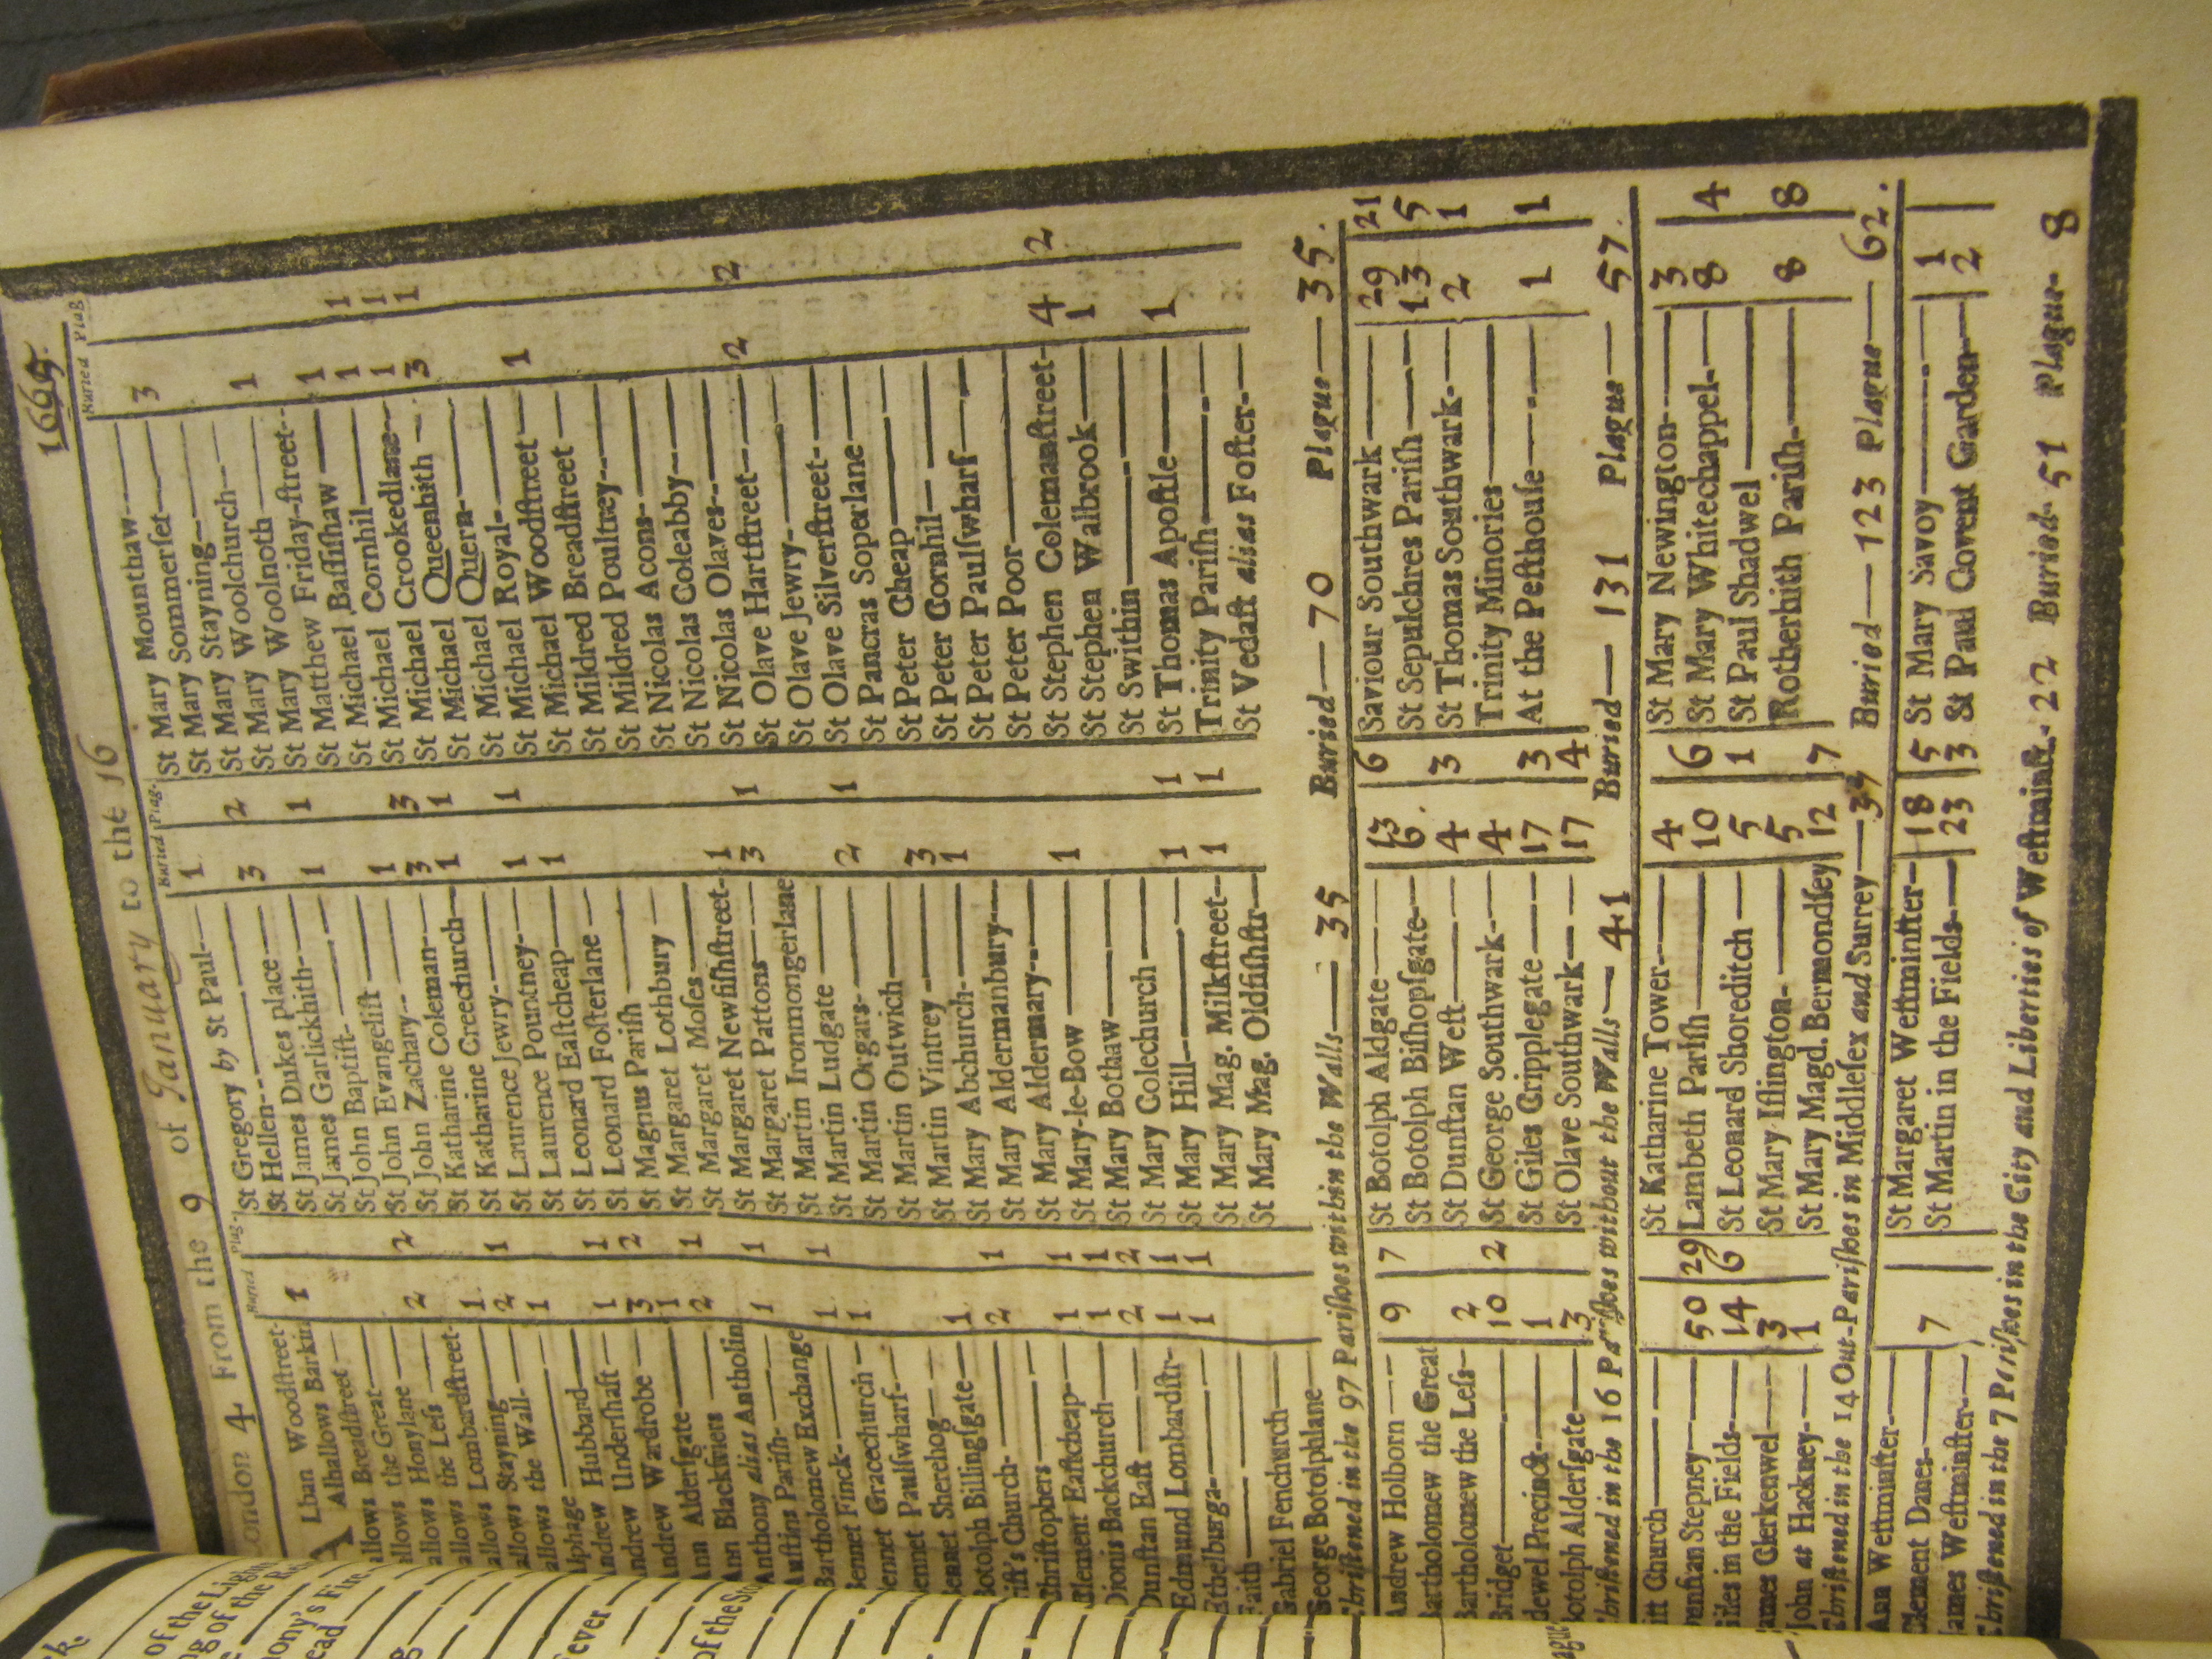 ondon 4 From the 9 of January to the 16 1665.
Buried Plag.
Lban Woodſtreet-
A Alhallows Barkin 1
allows Breadſtreet
allows the Great
allows Honylane 2 2
allows the Leſs
allows Lombardſtreet- 1
allows Stayning 2 1
allows the Wall- 1
lphage
ndrew Hubbard
ndrew Underſhaft 1 1
ndrew Wardrobe 3 2
Ann Alderſgate 1
Ann Blackfriers 2 1
Anthony alias Antholin
Auſtins Pariſh- 1 1
Bartholomew Exchange
Bennet Finck- 1 1
ennet Gracechurch 1
ennet Paulſwharf-
ennet Sherehog
Botolph Billingſgate 1
iſt's Church- 2 1
hriſtophers
lement Eaſtcheap 1 1
Dionis Backchurch 1 1
Dunſtan Eaſt 2 2
Edmund Lombardſtr- 1 1
Ethelburga- 1 1
Faith
Gabriel Fenchurch
George Botolphlane
Buried Plag.
St Gregory by St Paul- 1
St Hellen
St James Dukes place 3 2
St James Garlickhith
St John Baptiſt- 1 1
St John Evangeliſt
St John Zachary 1
St Katharine Coleman 3 3
St Katharine Creechurch 1 1
St Laurence Jewry
St Laurence Pountney 1 1
St Leonard Eaſtcheap 1
St Leonard Foſterlane
St Magnus Pariſh
St Margaret Lothbury
St Margaret Moſes
St Margaret Newfiſhſtreet- 1
St Margaret Pattons 3 1
St Martin Ironmongerlane
St Martin Ludgate
St Martin Orgars- 2 1
St Martin Outwich
St Martin Vintrey 3
St Mary Abchurch 1
St Mary Aldermanbury
St Mary Aldermary
St Mary-le-Bow 1
St Mary Bothaw
St Mary Colechurch
St Mary Hill 1 1
St Mary Mag. Milkſtreet- 1 1
St Mary Mag. Oldfiſhſtr-
Buried Plag
St Mary Mounthaw
St Mary Sommerſet 3
St Mary Stayning
St Mary Woolchurch
St Mary Woolnoth 1
St Matthew Friday-ſtreet-
St Michael Baſſiſhaw 1
St Michael Cornhil 1 1
St Michael Crookedlane 1 1
St Michael Queenhith 3 1
St Michael Quern
St Michael Royal
St Michael Woodſtreet 1
St Mildred Breadſtreet
St Mildred Poultrey
St Nicolas Acons
St Nicolas Coleabby
St Nicolas Olaves
St Olave Hartſtreet 2 2
St Olave Jewry
St Olave Silverſtreet
St Pancras Soperlane
St Peter Cheap
St Peter Cornhil
St Peter Paulſwharf
St Peter Poor
St Stephen Colemanſtreet 4 2
St Stephen Walbrook 1
St Swithin
St Thomas Apoſtle 1
Trinity Pariſh
St Vedaſt alias Foſter
hriſtened in the 97 Pariſhes within the Walls 35 Buried 70 Plague 35.
Andrew Holborn 9 7
Bartholomew the Great
Bartholomew the Leſs 2
Bridget 10 2
dewel Precinct 1
Botolph Alderſgate 3
St Botolph Aldgate 13 6
St Botolph Biſhopſgate 6
St Dunſtan Weſt 4 3
St George Southwark 4
St Giles Cripplegate 17 3
St Olave Southwark 17 4
Saviour Southwark 29 21
St Sepulchres Pariſh 13 5
St Thomas Southwark 2 1
Trinity Minories
At the Peſthouſe 1 1
hriſtened in the 16 Pariſhes without the Walls 41 Buried 131 Plague 57
iſt Church
unſtan Stepney 50 29
iles in the Fields 14 6
ames Clerkenwel 3
John at Hackney 1
St Katharine Tower 4
Lambeth Pariſh 10 6
St Leonard Shoreditch 5 1
St Mary Iſlington 5
St Mary Magd. Bermondſey 12 7
St Mary Newington 3
St Mary Whitechappel 8 4
St Paul Shadwel
Rotherhith Pariſh 8 8
hriſtened in the 14 Out-Pariſhes in Middleſex and Surrey Buried 123 Plague 62.
Ann Weſtminſter
Clement Danes 7
ames Weſtminſter
St Margaret Weſtminſter 18 5
St Martin in the Fields 23 3
St Mary Savoy 1
St Paul Covent Garden 2
hriſtened in the 7 Pariſhes in the City and Liberties of Weſtminſt. 22 Buried 51 Plague 8
k.
of the Ligh
ng of the
ony's Fire
ead
ever
of the